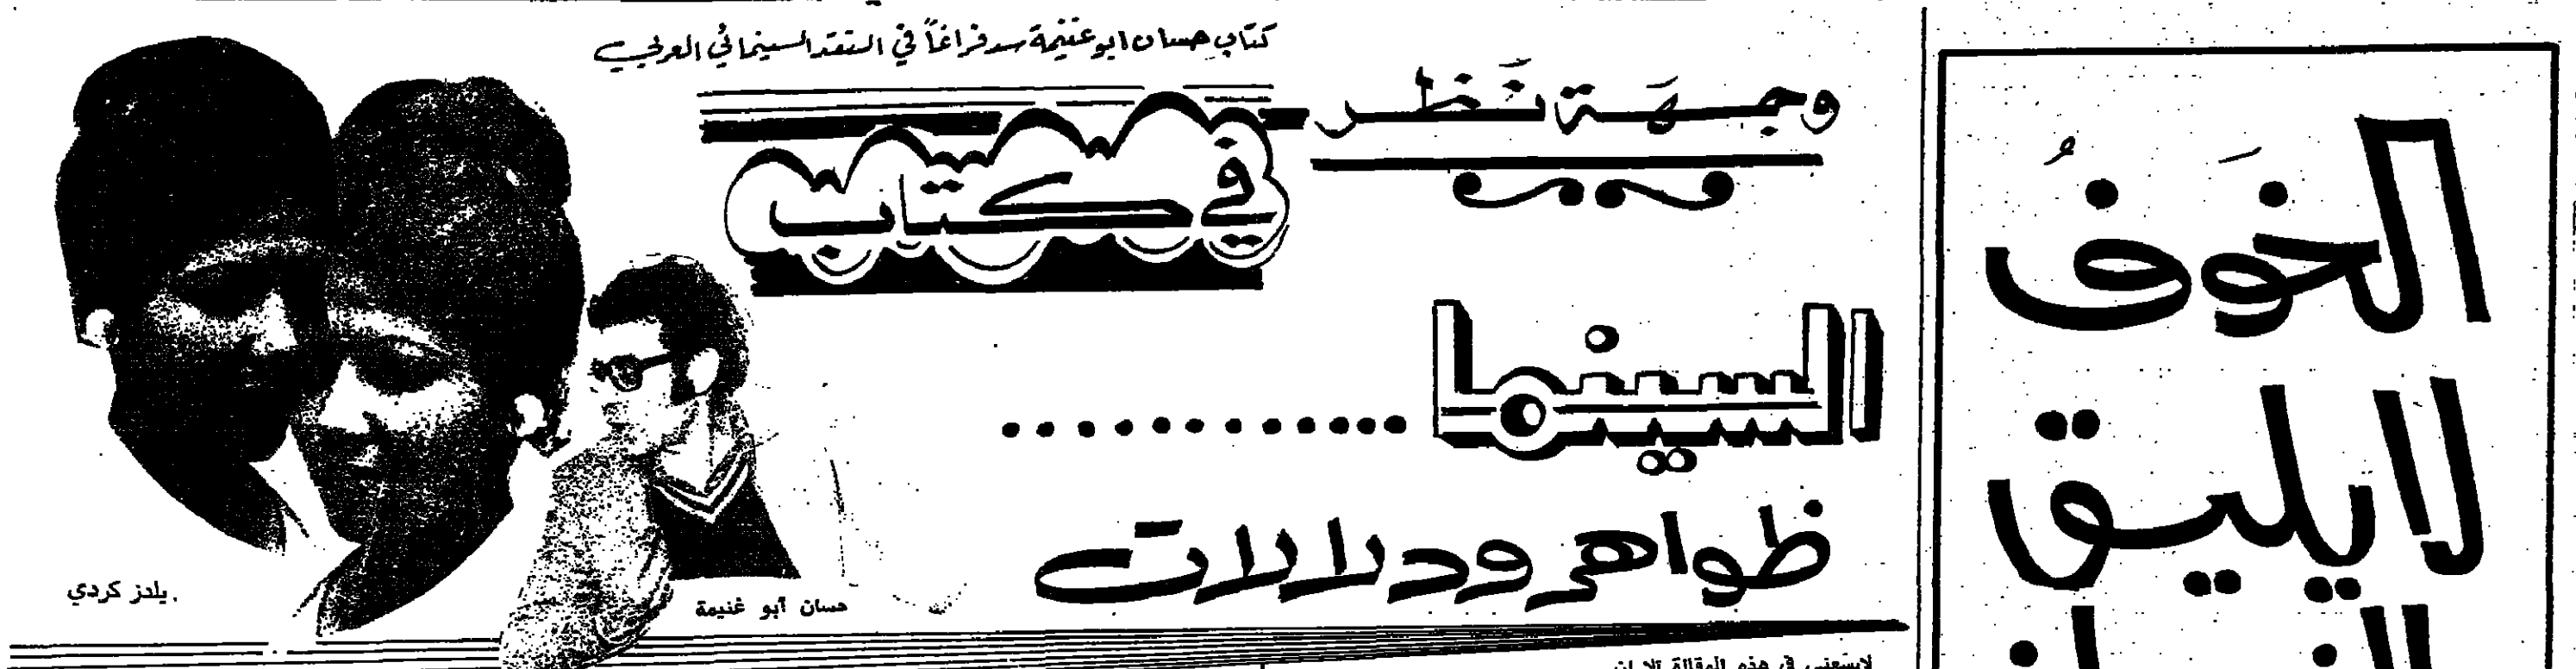 كتاب حسان ابو غنيمة سد فراغاً في النقد السينمائي العربي
وجهَة نَظر
في كتاب
السينما............
ظواهر ودلالات
يلدز كردي
حسان أبو غنيمة
لايسعني في هذه المقالة الا ان
الخَوفُ
لايليق